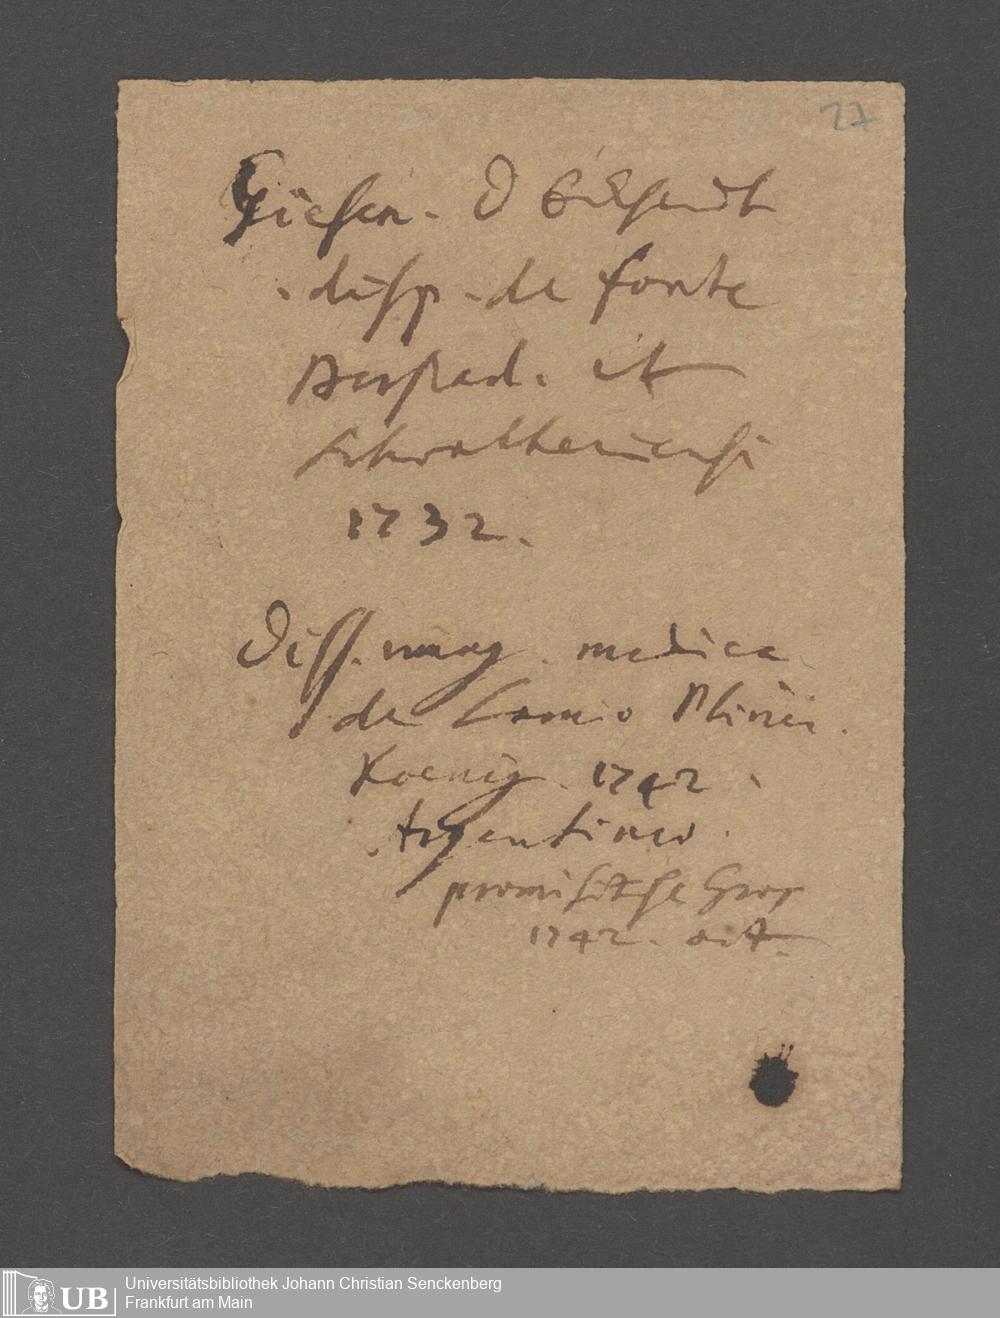 27
Giesen. D
disp. de fonte
et
Schwalheimensi
1732.
Diss. inaug. medica
de Lamio Plinii.
Koenig. 1742
Argentinae.
promisit Gros
1742. oct.
UB
Universitätsbibliothek Johann Christian Senckenberg
Frankfurt am Main